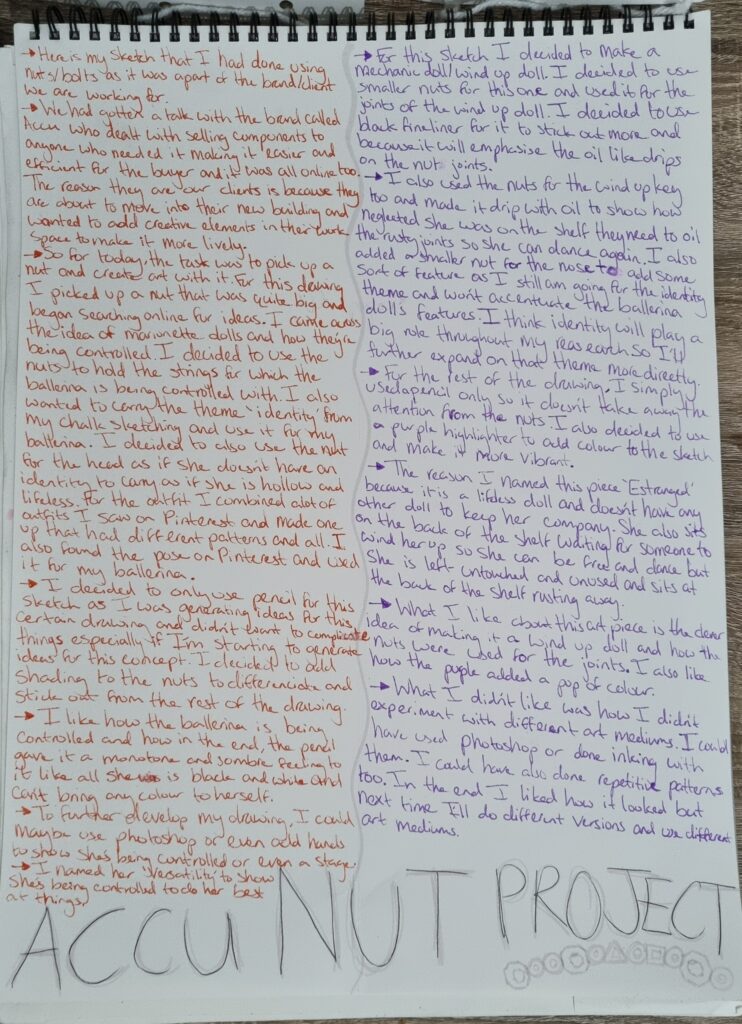 →Here is my sketch that I had done using
nuts/bolts as it was apart of the brand/client
we are working for.
→We had gotten a talk with the brand called
Accu who dealt with selling components to
anyone who needed it making it easier and
efficient for the buyer and it was all online too.
The reason they are our clients is because they
are about to move into their new building and
wanted to add creative elements in their work
space to make it more lively.
→So for today, the task was to pick up a
nut and create art with it. For this drawing
I picked up a nut that was quite big and
began searching online for ideas. I came across
the idea of marionette dolls and how they're
being controlled. I decided to use the
nuts to hold the strings for which the
ballerina is being controlled with. I also
wanted to carry the theme 'identity' from
my chalk sketching and use it for my
ballerina. I decided to also use the nut
for the head as if she doesn't have an
identity to carry as if she is hollow and
lifeless. For the outfit I combined alot of
outfits I saw on Pinterest and made one
up that had different patterns and all. I
also found the pose on Pinterest and used
it for my ballerina.
→I decided to only use pencil for this
sketch as I was generating ideas for this
certain drawing and didn't want to complicate
things especially if I'm starting to generate
ideas for this concept. I decided to add
shading to the nuts to differenciate and
stick out from the rest of the drawing.
→I like how the ballerina is being
controlled and how in the end, the pencil
gave it a monotone and sombre feeling to
it like all she is black and white and
can't bring any colour to herself.
→To further develop my drawing, I could
maybe use photoshop or even add hands
to show she's being controlled or even a stage.
→I named her 'versatility' to show
she's being controlled to do her best
at things.
→For this sketch I decided to make a
mechanic doll/wind up doll. I decided to use
smaller nuts for this one and used it for the
joints of the wind up doll. I decided to use
black fineliner for it to stick out more and
because it will emphasise the oil like drips
on the nut joints.
→I also used the nuts for the wind up key
too and made it drip with oil to show how
neglected she was on the shelf they need to oil
the rusty joints so she can dance again. I also
added a smaller nut for the nose to add some
sort of feature as I still am going for the identity
theme and won't accentuate the ballerina
doll's features. I think identity will play a
big role throughout my reasearch so I'll
further expand on that theme more directly.
→For the rest of the drawing, I simply
used a pencil only so it doesn't take away the
attention from the nuts. I also decided to use
a purple highlighter to add colour to the sketch
and make it more vibrant.
→The reason I named this piece 'Estranged'
because it is a lifeless doll and doesn't have any
other doll to keep her company. She also sits
on the back of the shelf waiting for someone to
wind her up so she can be free and dance but
she is left untouched and unused and sits at
the back of the shelf rusting away.
→What I like about this art piece is the clear
idea of making it a wind up doll and how the
nuts were used for the joints. I also like
how the purple added a pop of colour.
→What I didn't like was how I didn't
experiment with different art mediums. I could
have used photoshop or done inking with
them. I could have also done repetitive patterns
too. In the end I liked how it looked but
next time I'll do different versions and use different
art mediums.
ACCU NUT PROJECT